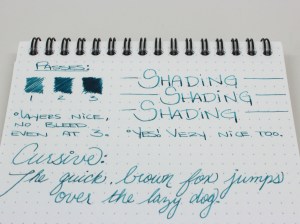 PASSES:
1 2 3
•LAYERS NICE,
NO BLEED
EVEN AT 3.
SHADING
SHADING
SHADING
•YES! VERY NICE TOO.
Cursive:
The quick, brown fox jumps
over the lazy dog.